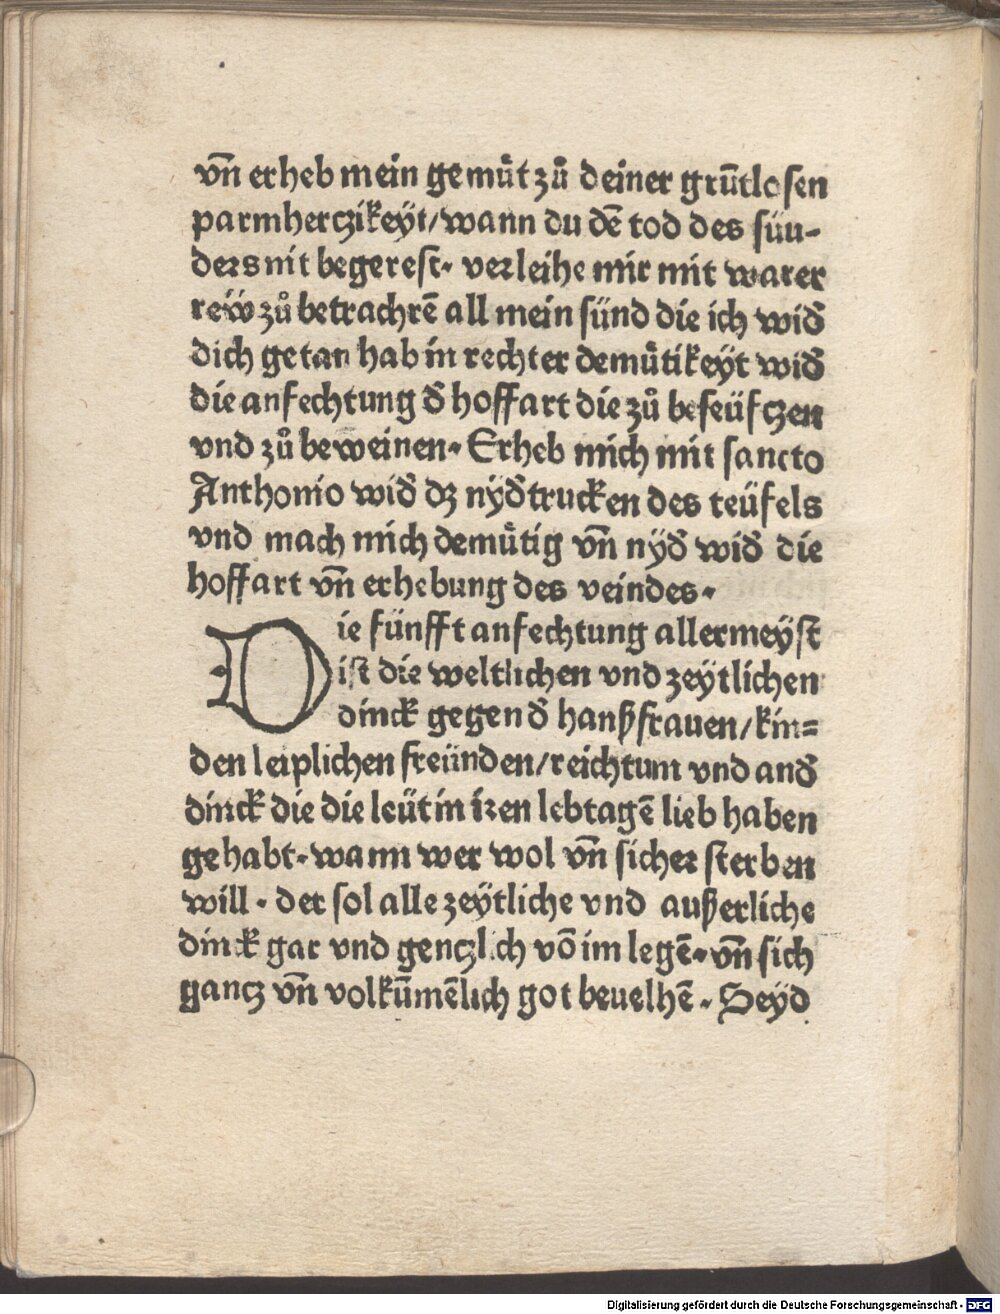 vñ erheb mein gemuͤt zuͦ deiner grūtlosen
parmherczikeÿt/wann du dē tod des süu-
ders nit begerest· verleihe mir mit warer
reẅ zuͦ betrachtē all mein sünd die ich wid̄
dich getan hab in rechter demuͤtikeÿt wid̄
die anfechtung d̄ hoffart die zuͦ beseüfczen
vnd zuͦ beweinen· Erheb mich mit sancto
Anthonio wid̄ dz nÿd̄trucken des teüfels
vnd mach mich demuͤtig vñ nÿd̄ wid̄ die
hoffart vñ erhebung des veindes·
Die fünfft anfechtung allermeÿst
ist die weltlichen vnd zeÿtlichen
dinck gegen d̄ hanßfrauen/kin=
den leiplichen freünden/reichtum vnd and̄
dinck die die leüt in iren lebtagē lieb haben
gehabt· wann wer wol vñ sicher sterben
will· der sol alle zeÿtliche vnd außerliche
dinck gar vnd genczlich vō im legē· vñ sich
gancz vñ volkūmēlich got beuelhē· Seÿd
Digitalisierung gefördert durch die Deutsche Forschungsgemeinschaft - DFG